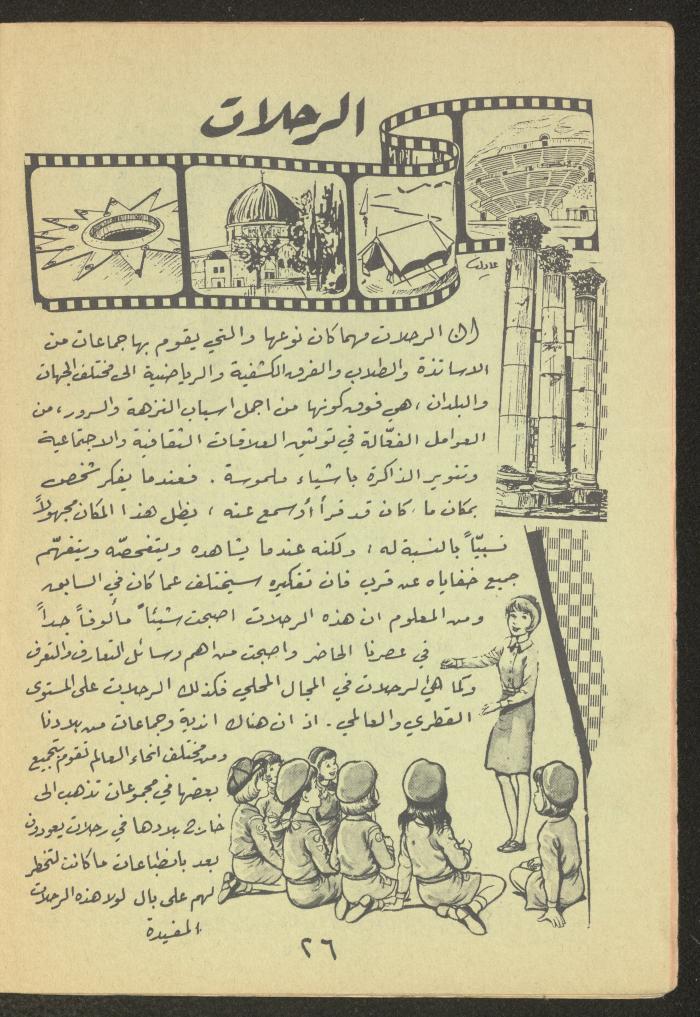 الرحلات
عادل
ان الرحلات مهما كان نوعها والتي يقوم بها جماعات من
الاساتذة والطلاب والفرق الكشفية والرياضية الى مختلف الجهات
والبلدان، هي فوق كونها من اجمل اسباب النزهة والسرور، من
العوامل الفعّالة في توثيق العلاقات الثقافية والاجتماعية
وتنوير الذاكرة باشياء ملموسة . فعندما يفكر شخص
بمكان ما، كان قد قرأ أو سمع عنه ، يظل هذا المكان مجهولاً
نسبيّاً بالنسبة له ، ولكنه عندما يشاهده ويتفحصّه ويتفهّم
جميع خفاياه عن قرب فان تفكيره سيختلف عما كان في السابق
ومن المعلوم ان هذه الرحلات اصبحت شيئاً مألوفاً جداً
في عصرنا الحاضر واصبحت من اهم وسائل التعارف والتعرف
وكما هي الرحلات في المجال المحلي فكذلك الرحلات على المستوى
القطري والعالمي . اذ ان هناك اندية وجماعات من بلادنا
ومن مختلف انحاء العالم تقوم بتجميع
بعضها في مجموعات تذهب الى
خارج بلادها في رحلات يعودون
بعد بانطباعات ما كانت لتخطر
لهم على بال لولا هذه الرحلات
المفيدة
٢٦